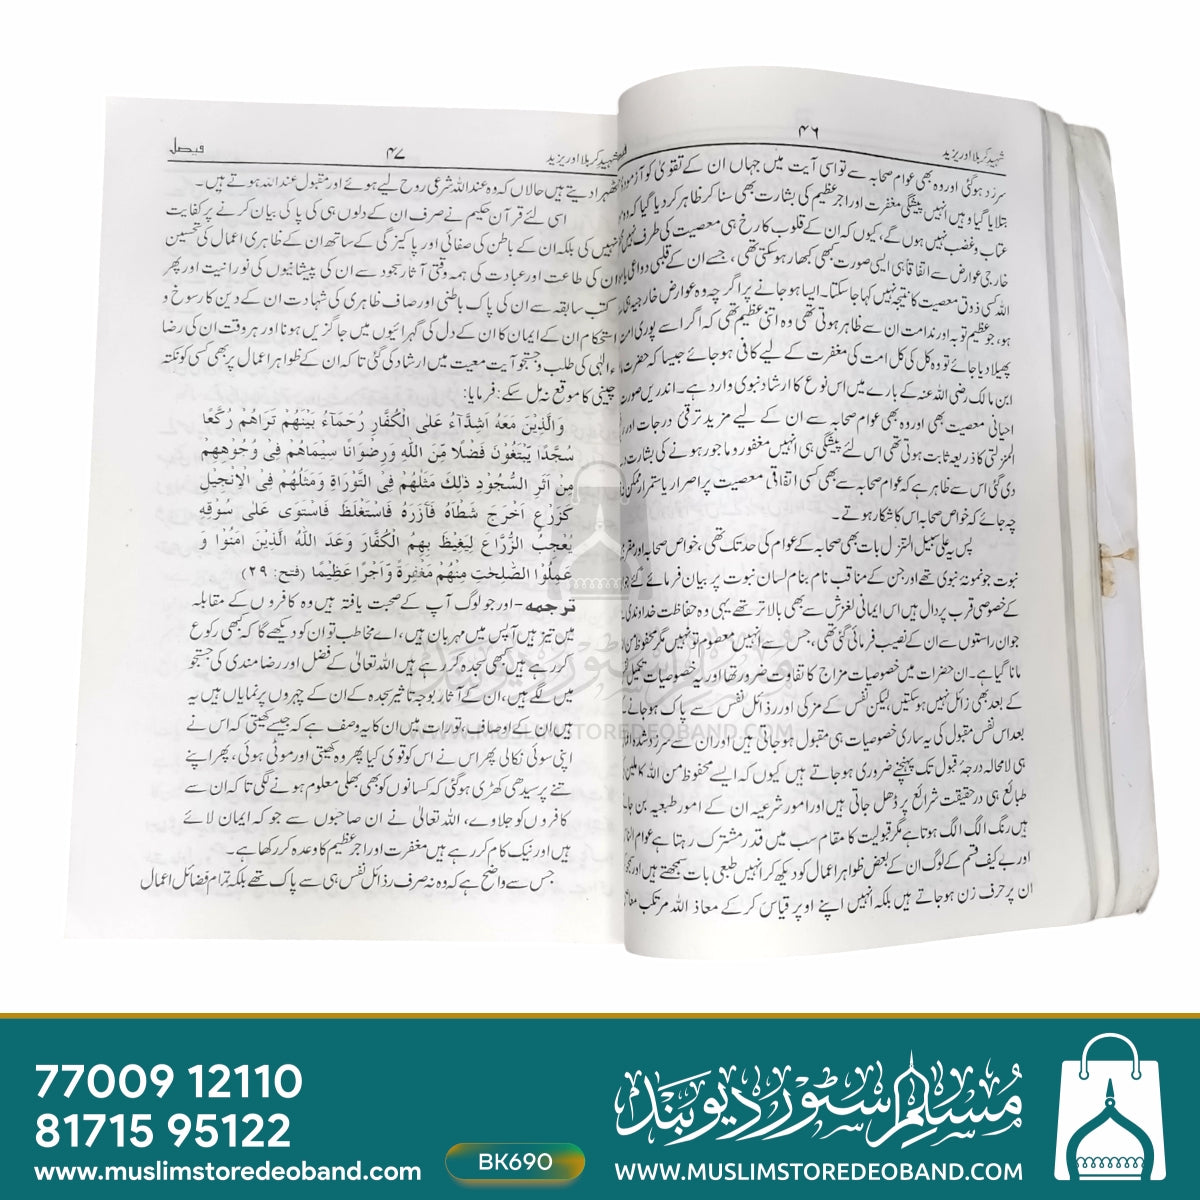 شہید کربلا اور یزید
۴۶
سرزد ہوگئی اور وہ بھی عوام صحابہ سے تو اسی آیت میں جہاں ان کے تقویٰ کو آزمودہ
بتلایا گیا وہیں انہیں پیشگی مغفرت اور اجر عظیم کی بشارت بھی سنا کر ظاہر کر دیا گیا کہ وہ
عتاب و غضب نہیں ہوں گے، کیوں کہ ان کے قلوب کا رخ ہی معصیت کی طرف نہیں
خارجی عوارض سے اتفاقاً ہی ایسی صورت کبھی کبھار ہوسکتی تھی، جسے ان کے قلبی دواعی یا
اللہ کسی ذوق معصیت کا نتیجہ نہیں کہا جاسکتا۔ ایسا ہو جانے پر اگرچہ وہ عوارض خارجیہ ہی
ہو، جو عظیم توبہ اور ندامت ان سے ظاہر ہوتی تھی وہ اتنی عظیم تھی کہ اگر اسے پوری امت
پھیلا دیا جائے تو وہ کل کی کل امت کی مغفرت کے لیے کافی ہو جائے جیسا کہ حضرت
ابن مالک رضی اللہ عنہ کے بارے میں اس نوع کا ارشاد نبوی وارد ہے۔ اندریں صورت
احیانی معصیت بھی اور وہ بھی عوام صحابہ سے ان کے لیے مزید ترقی درجات اور
المنزلتی کا ذریعہ ثابت ہوتی تھی اس لئے پیشگی ہی انہیں مغفور و ماجور ہونے کی بشارت
دی گئی اس سے ظاہر ہے کہ عوام صحابہ سے بھی کسی اتفاقی معصیت پر اصرار یا استمرار ممکن
چہ جائے کہ خواص صحابہ اس کا شکار ہوتے۔
پس یہ علی سبیل التنزل بات بھی صحابہ کے عوام کی حد تک تھی، خواص صحابہ اور
نبوت جو نمونۂ نبوی تھے اور جن کے مناقب نام بنام لسان نبوت پر بیان فرمائے گئے جو
کے خصوصی قرب پر دال ہیں اس ایمانی لغزش سے بھی بالاتر تھے یہی وہ حفاظت خداوندی
جو ان راستوں سے ان کے نصیب فرمائی گئی تھی، جس سے انہیں معصوم تو نہیں مگر محفوظ من
مانا گیا ہے۔ ان حضرات میں خصوصیات مزاج کا تفاوت ضرور تھا اور یہ خصوصیات تکمیل
کے بعد بھی زائل نہیں ہوسکتیں لیکن نفس کے مزکی اور رذائل نفس سے پاک ہوجانے
بعد اس نفس مقبول کی یہ ساری خصوصیات ہی مقبول ہوجاتی ہیں اور ان سے سرزد شدہ
ہی لامحالہ درجۂ قبول تک پہنچنے ضروری ہو جاتے ہیں کیوں کہ ایسے محفوظ من اللہ کاملین
طبائع ہی درحقیقت شرائع پر ڈھل جاتی ہیں اور امور شرعیہ ان کے امور طبعیہ بن جاتے
ہیں رنگ الگ الگ ہوتا ہے مگر قبولیت کا مقام سب میں قدر مشترک رہتا ہے عوام الناس
اور بے کیف قسم کے لوگ ان کے بعض ظواہر اعمال کو دیکھ کر انہیں طبعی بات سمجھتے ہیں اور
ان پر حرف زن ہو جاتے ہیں بلکہ انہیں اپنے اوپر قیاس کر کے معاذ اللہ مرتکب معاصی
شہید کربلا اور یزید
۴۷
فیصل
ٹھہرا دیتے ہیں حالاں کہ وہ عند اللہ شرعی روح لیے ہوئے اور مقبول عند اللہ ہوتے ہیں۔
اسی لئے قرآن حکیم نے صرف ان کے دلوں ہی کی پاکی بیان کرنے پر کفایت
نہیں کی بلکہ ان کے باطن کی صفائی اور پاکیزگی کے ساتھ ان کے ظاہری اعمال کی تحسین
ان کی طاعت اور عبادت کی ہمہ وقتی آثار سجود سے ان کی پیشانیوں کی نورانیت اور پھر
کتب سابقہ سے ان کی پاک باطنی اور صاف ظاہری کی شہادت ان کے دین کا رسوخ و
استحکام ان کے ایمان کا ان کے دل کی گہرائیوں میں جاگزیں ہونا اور ہر وقت ان کی رضا
الٰہی کی طلب و جستجو آیت معیت میں ارشاد کی گئی تاکہ ان کے ظواہر اعمال پر بھی کسی کو نکتہ
چینی کا موقع نہ مل سکے: فرمایا:
وَالَّذِيْنَ مَعَهُ اَشِدَّآءُ عَلَى الْكُفَّارِ رُحَمَآءُ بَيْنَهُمْ تَرَاهُمْ رُكَّعًا
سُجَّدًا يَّبْتَغُوْنَ فَضْلًا مِّنَ اللّٰهِ وَرِضْوَانًا سِيْمَاهُمْ فِىْ وُجُوْهِهِمْ
مِنْ اَثَرِ السُّجُوْدِ ذٰلِكَ مَثَلُهُمْ فِى التَّوْرَاةِ وَمَثَلُهُمْ فِى الْاِنْجِيْلِ
كَزَرْعٍ اَخْرَجَ شَطْاَهُ فَآزَرَهُ فَاسْتَغْلَظَ فَاسْتَوٰى عَلٰى سُوْقِهِ
يُعْجِبُ الزُّرَّاعَ لِيَغِيْظَ بِهِمُ الْكُفَّارَ وَعَدَ اللّٰهُ الَّذِيْنَ اٰمَنُوْا وَ
عَمِلُوا الصّٰلِحٰتِ مِنْهُمْ مَغْفِرَةً وَّاَجْرًا عَظِيْمًا (فتح: ۲۹)
ترجمہ- اور جو لوگ آپ کے صحبت یافتہ ہیں وہ کافروں کے مقابلہ
میں تیز ہیں آپس میں مہربان ہیں، اے مخاطب تو ان کو دیکھے گا کہ کبھی رکوع
کر رہے ہیں کبھی سجدہ کر رہے ہیں اللہ تعالیٰ کے فضل اور رضامندی کی جستجو
میں لگے ہیں، ان کے آثار بوجہ تاثیر سجدہ کے ان کے چہروں پر نمایاں ہیں یہ
ہیں ان کے اوصاف، تورات میں ان کا یہ وصف ہے کہ جیسے کھیتی کہ اس نے
اپنی سوئی نکالی پھر اس نے اس کو قوی کیا پھر وہ کھیتی اور موٹی ہوئی، پھر اپنے
تنے پر سیدھی کھڑی ہوگئی کہ کسانوں کو بھی بھلی معلوم ہونے لگی تاکہ ان سے
کافروں کو جلاوے، اللہ تعالیٰ نے ان صاحبوں سے جو کہ ایمان لائے
ہیں اور نیک کام کر رہے ہیں مغفرت اور اجر عظیم کا وعدہ کر رکھا ہے۔
جس سے واضح ہے کہ وہ نہ صرف رذائل نفس ہی سے پاک تھے بلکہ تمام فضائل اعمال
مسلم سٹور دیوبند
WWW.MUSLIMSTOREDEOBAND.COM
77009 12110
81715 95122
www.muslimstoredeoband.com
BK690
مسلم سٹور دیوبند
WWW.MUSLIMSTOREDEOBAND.COM